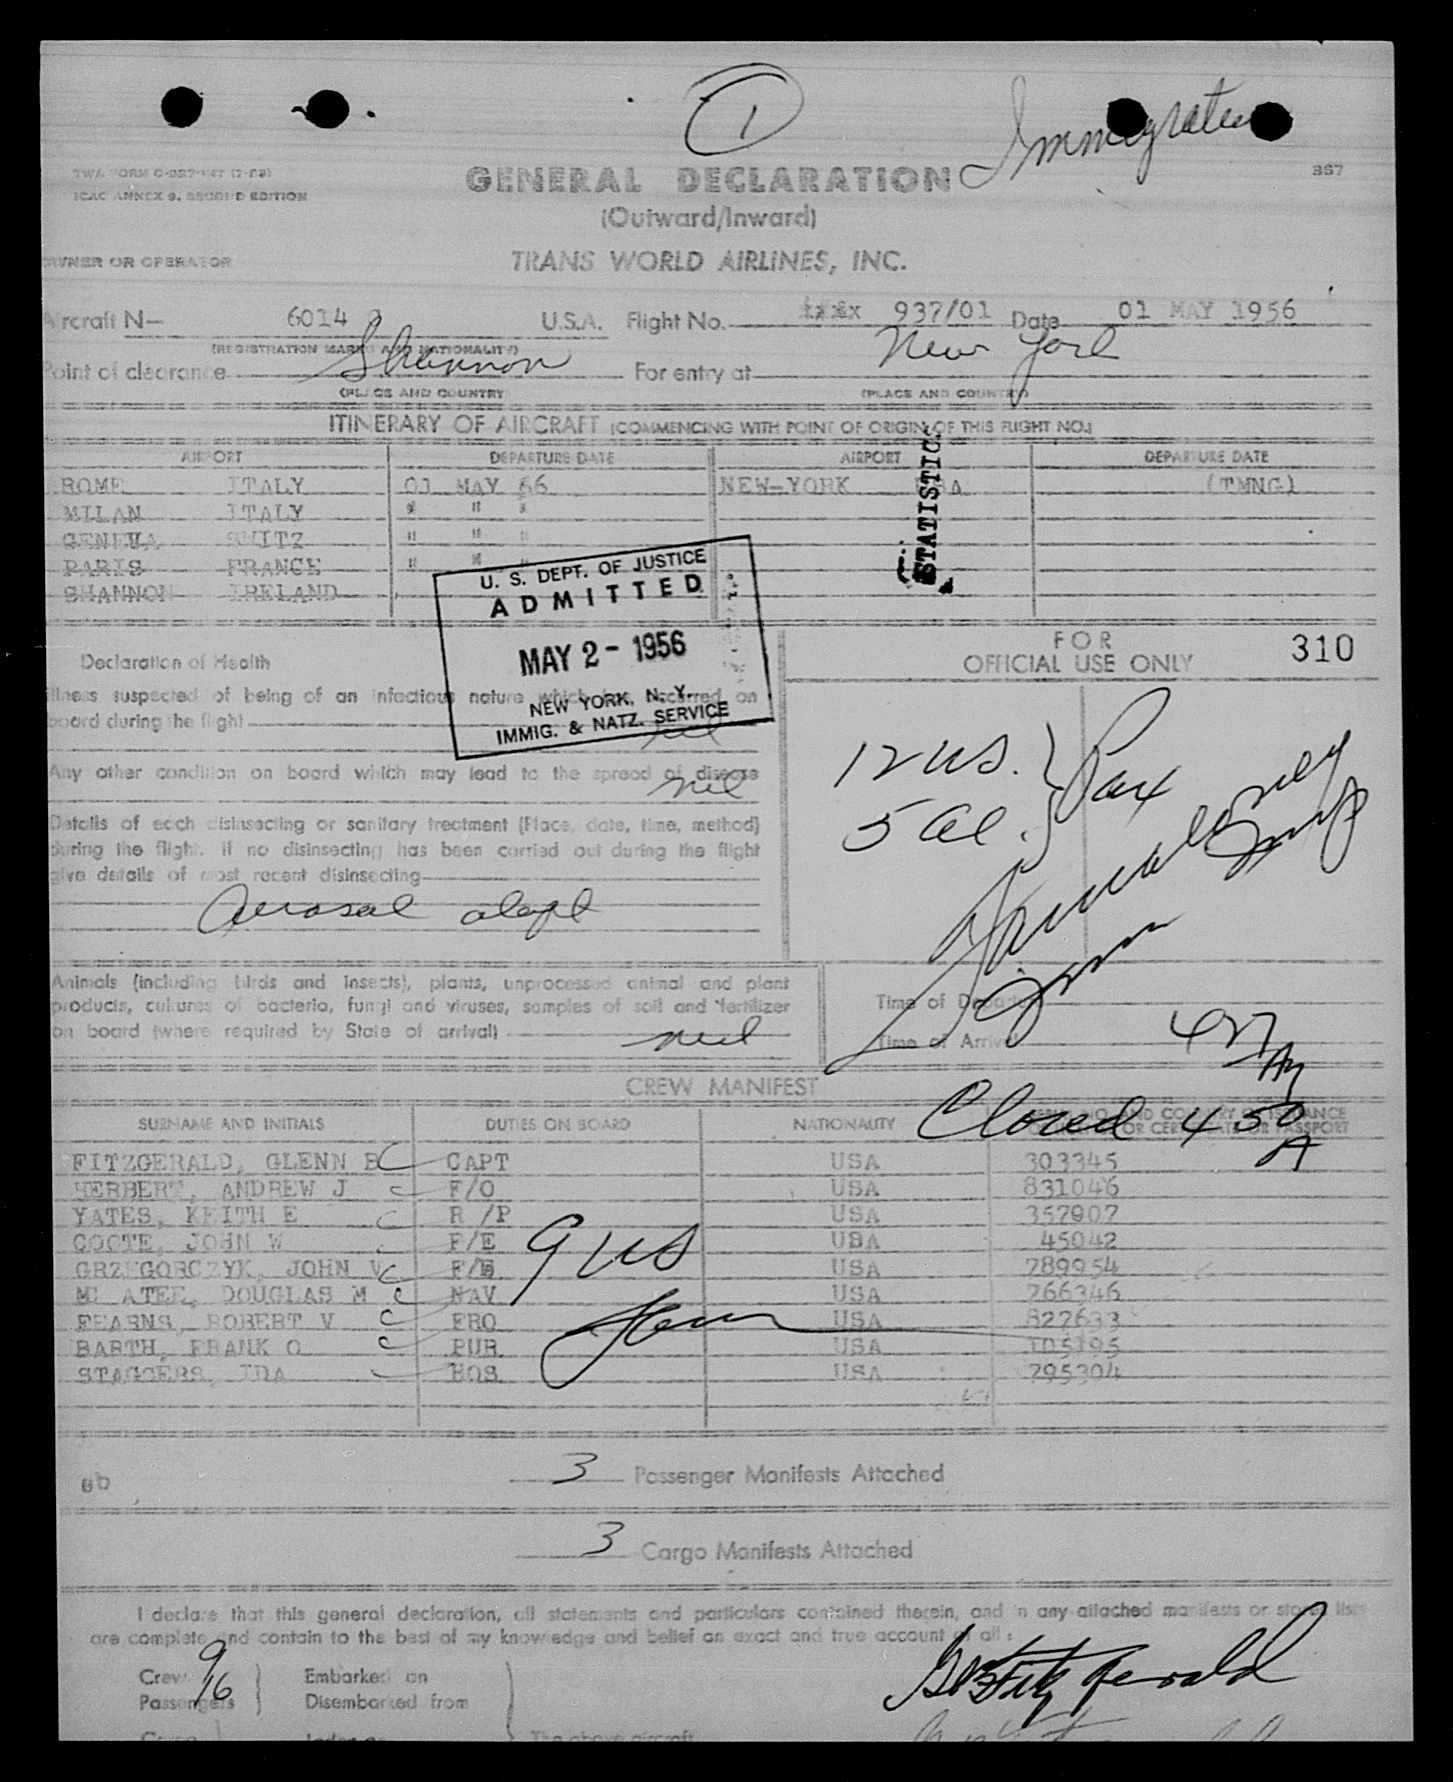 1
TWA FORM
ICAO ANNEX 9, SECOND EDITION
GENERAL DECLARATION
367
(Outward/Inward)
OWNER OR OPERATOR
TRANS WORLD AIRLINES, INC.
Aircraft N— 6014 U.S.A. Flight No. 937/01 Date 01 MAY 1956
(REGISTRATION MARKS AND NATIONALITY)
Point of clearance Shannon For entry at New York
(PLACE AND COUNTRY) (PLACE AND COUNTRY)
ITINERARY OF AIRCRAFT (COMMENCING WITH POINT OF ORIGIN OF THIS FLIGHT NO.)
AIRPORT DEPARTURE DATE AIRPORT DEPARTURE DATE
ROME ITALY 01 MAY 56 NEW-YORK USA (TMNG)
MILAN ITALY " " "
GENEVA SWITZ " " "
PARIS FRANCE " " "
SHANNON IRELAND
STATISTIC
U. S. DEPT. OF JUSTICE
ADMITTED
MAY 2 - 1956
NEW YORK, N. Y.
IMMIG. & NATZ. SERVICE
FOR
OFFICIAL USE ONLY
310
Declaration of Health
Illness suspected of being of an infectious nature which has occurred on
board during the flight nil
Any other condition on board which may lead to the spread of disease
nil
Details of each disinsecting or sanitary treatment (Place, date, time, method)
during the flight. If no disinsecting has been carried out during the flight
give details of most recent disinsecting
Aerosol
12 US. } Pax
5 Al.
Animals (including birds and insects), plants, unprocessed animal and plant
products, cultures of bacteria, fungi and viruses, samples of soil and fertilizer
on board (where required by State of arrival) nil
Time of Departure
Time of Arrival 427
Closed 450 A
CREW MANIFEST
SURNAME AND INITIALS DUTIES ON BOARD NATIONALITY
FITZGERALD, GLENN B CAPT USA 303345
HERBERT, ANDREW J F/O USA 831046
YATES, KEITH E R/P USA 357907
COOTE, JOHN W F/E USA 45042
GRZEGORCZYK, JOHN V F/E USA 789954
MC ATEE, DOUGLAS M NAV USA 766346
FEARNS, ROBERT V FRO USA 827633
BARTH, FRANK O PUR USA 105195
STAGGERS, IDA HOS USA 795304
9 US
3 Passenger Manifests Attached
3 Cargo Manifests Attached
I declare that this general declaration, all statements and particulars contained therein, and in any attached manifests or stores lists
are complete and contain to the best of my knowledge and belief an exact and true account of all:
Crew 9 Embarked on
Passengers 16 Disembarked from
The above aircraft